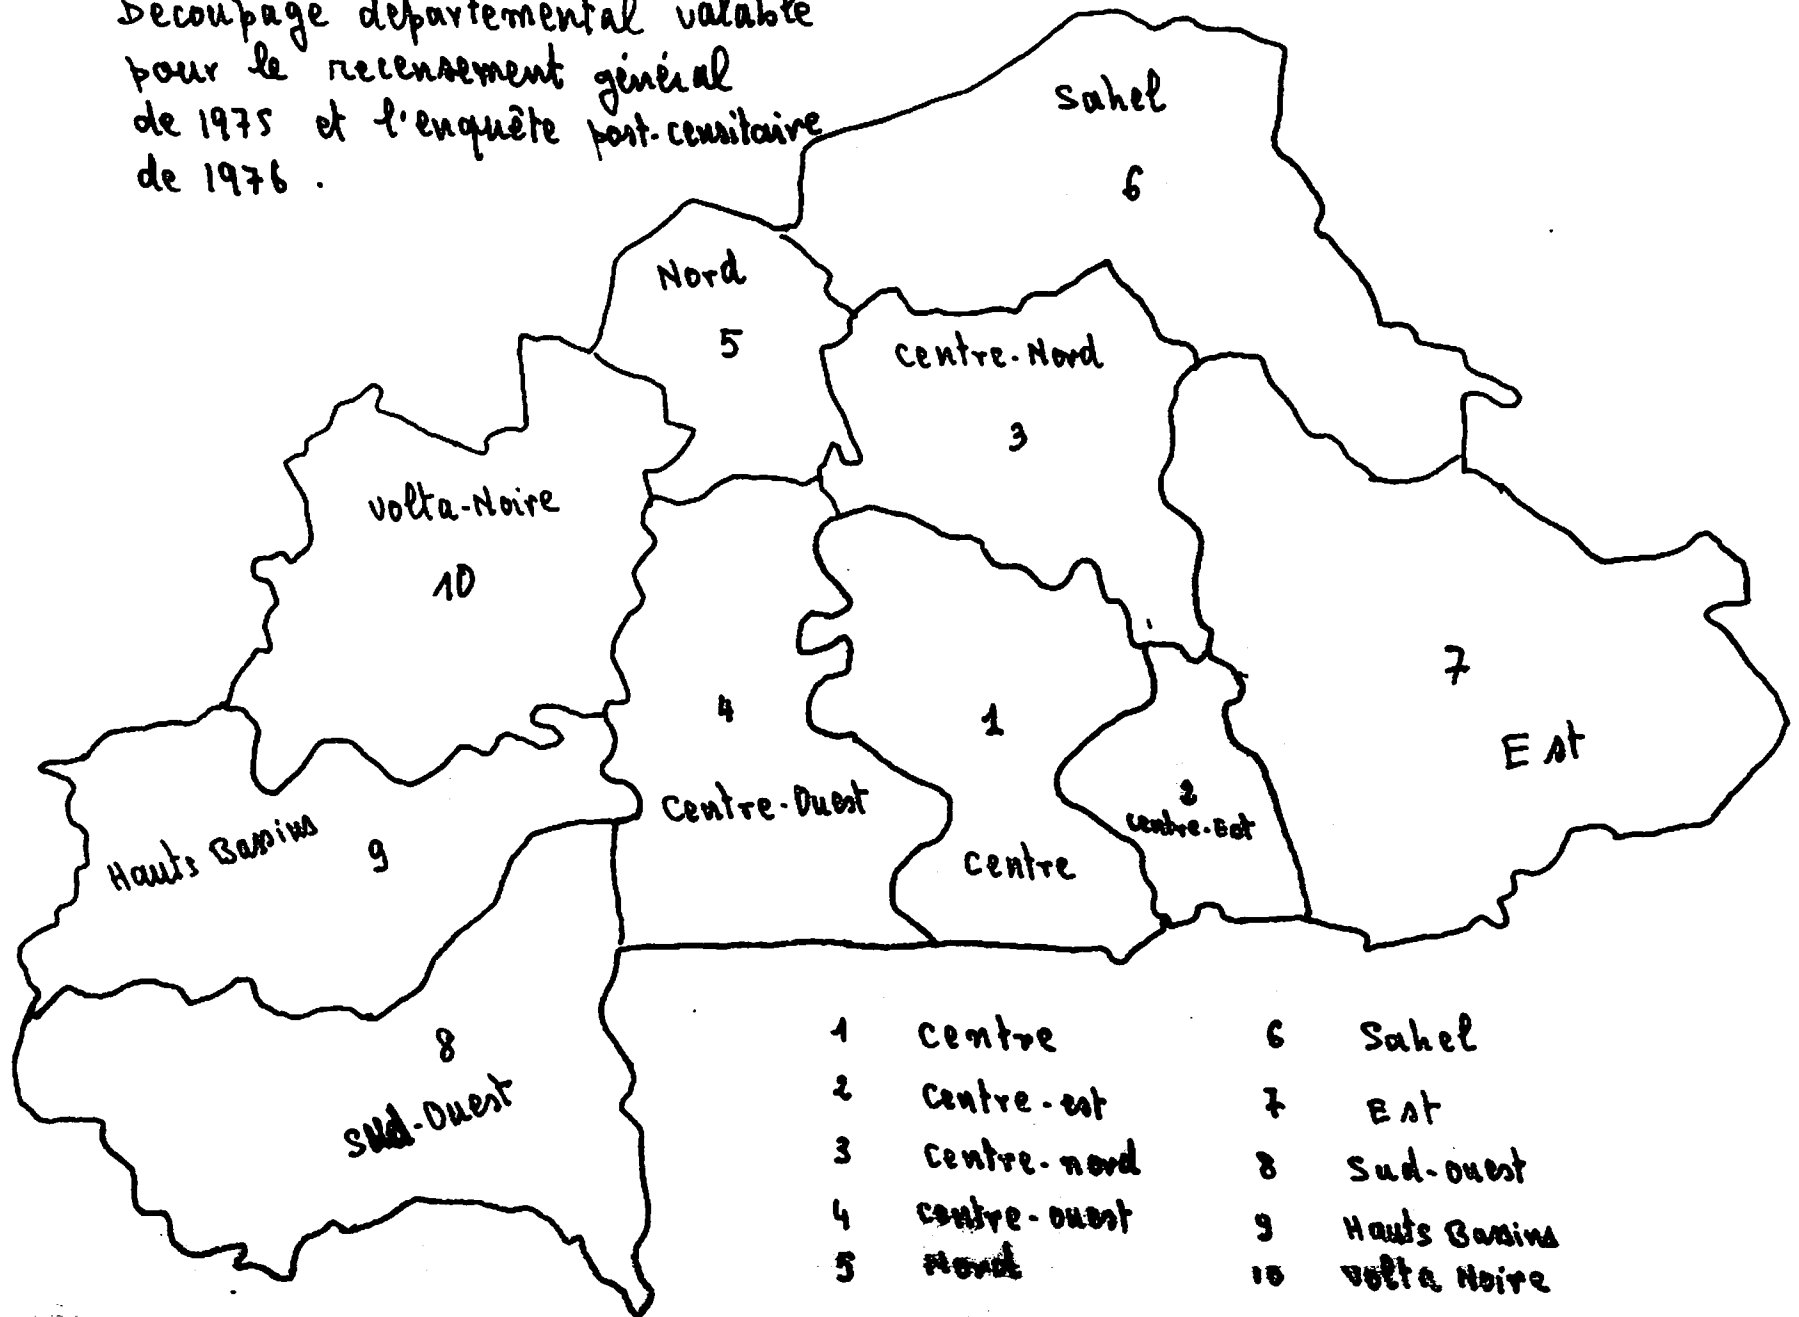 Découpage départemental valable
pour le recensement général
de 1975 et l'enquête post-censitaire
de 1976.
Sahel
6
Nord
5
Centre-Nord
3
Volta-Noire
10
7
Est
4
Centre-Ouest
1
Centre
2
Centre-Est
Hauts Bassins
9
8
Sud-Ouest
1 Centre
2 Centre-est
3 Centre-nord
4 Centre-ouest
5 Nord
6 Sahel
7 Est
8 Sud-ouest
9 Hauts Bassins
10 Volta Noire